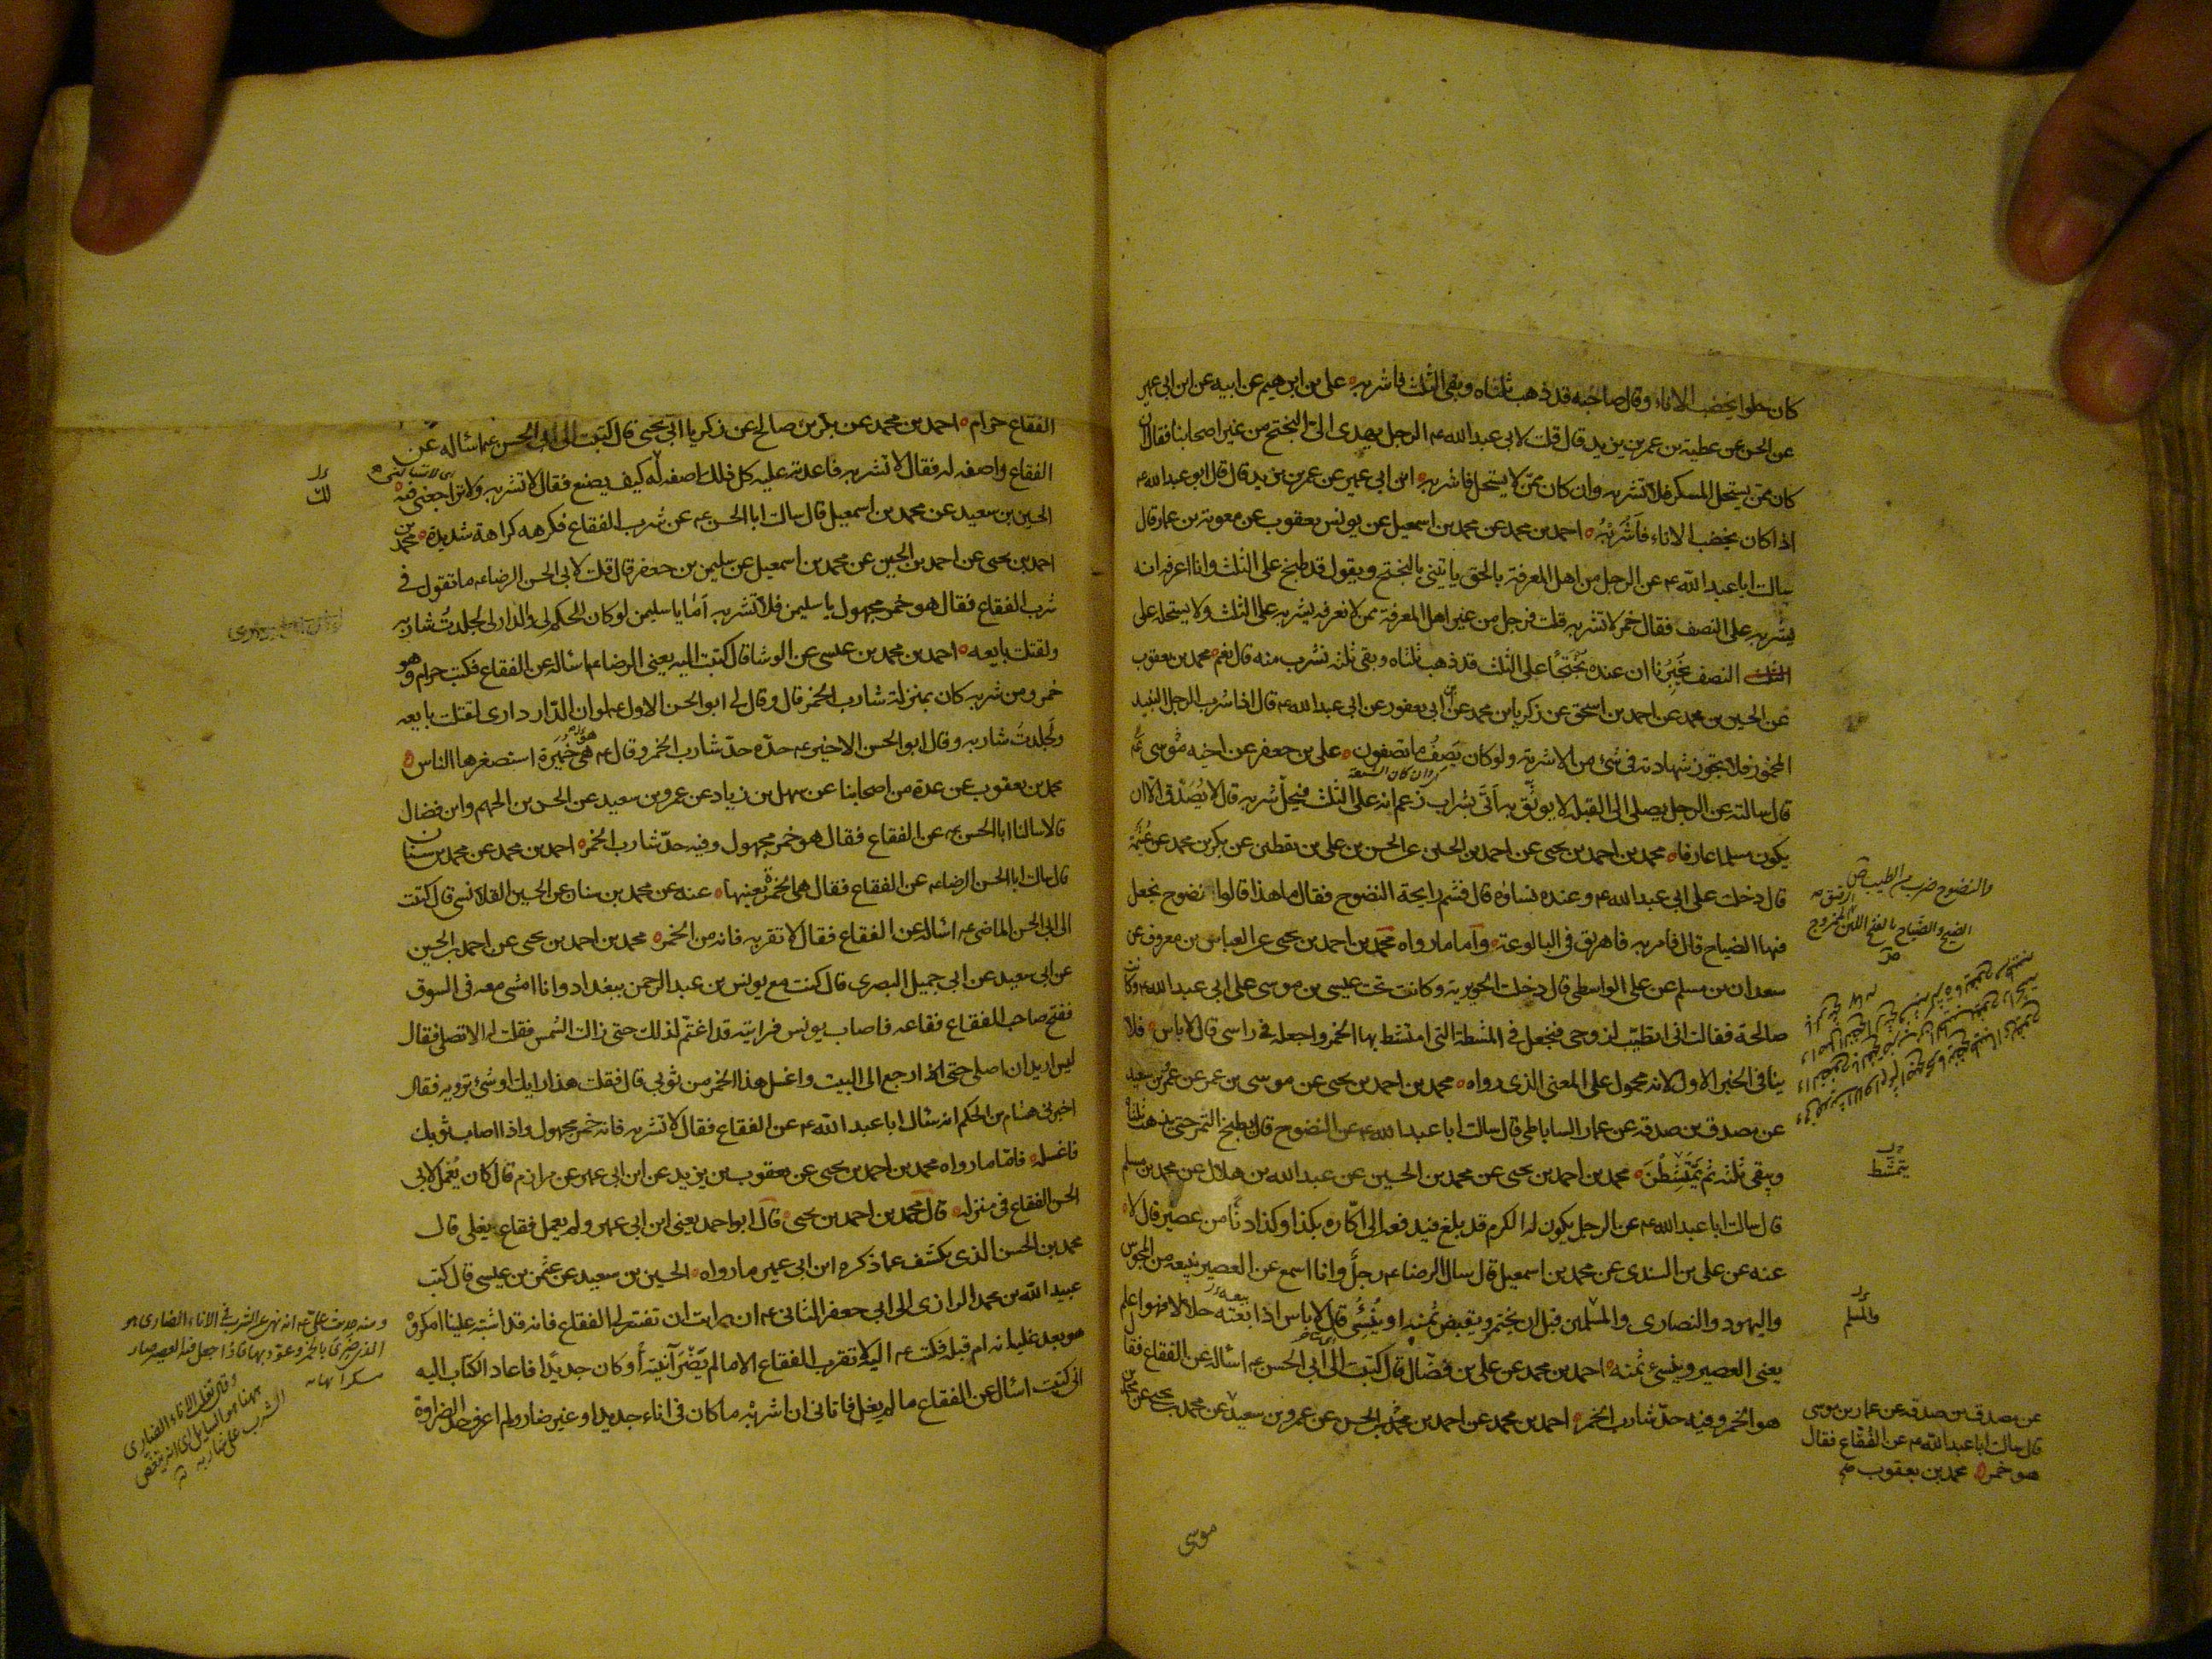 كان حلوا يخضب الاناء وقال صاحبه قد ذهب ثلثاه وبقي الثلث فاشربه علي بن ابرهيم عن ابيه عن ابن ابي عمير
عن الحسن عن عطية بن عمر بن يزيد قال قلت لابي عبد الله ع الرجل يهدى الي البختج من غير اصحابنا فقال ان
كان ممن يستحل المسكر فلا تشربه وان كان ممن لا يستحل فاشربه ابن ابي عمير عن عمر بن يزيد قال قال ابو عبد الله ع
اذا كان يخضب الاناء فاشربه احمد بن محمد عن محمد بن اسمعيل عن يونس يعقوب عن معوية بن عمار قال
سالت ابا عبد الله ع عن الرجل من اهل المعرفة بالحق ياتيني بالبختج ويقول قد طبخ على الثلث وانا اعرف انه
يشربه على النصف فقال خمر لا تشربه قلت فرجل من غير اهل المعرفة ممن لا نعرفه يشربه على الثلث ولا يستحله على
النصف يخبرنا ان عنده بختجا على الثلث قد ذهب ثلثاه وبقي ثلثه نشرب منه قال نعم محمد بن يعقوب
عن الحسين بن محمد عن احمد بن اسحق عن زكريا بن محمد عن ابن ابي يعفور عن ابي عبد الله ع قال اذا شرب الرجل النبيذ
المخمور فلا تجوز شهادته في شئ من الاشربة ولو كان يصف ما تصفون علي بن جعفر عن اخيه موسى ع
قال سالته عن الرجل يصلي الى القبلة لا يوثق به اتى بشراب زعم انه على الثلث فيحل شربه قال لا يصدق الا ان
يكون مسلما عارفا محمد بن احمد بن يحيى عن احمد بن الحسن عن الحسن بن علي بن يقطين عن بكر بن محمد عن عيثمة
قال دخلت على ابي عبد الله ع وعنده نساؤه قال فشم رايحة النضوح فقال ما هذا قالوا نضوح يجعل
فيها الضياح قال فامر به فاهريق في البالوعة واما ما رواه محمد بن احمد بن يحيى عن العباس بن معروف عن
سعدان بن مسلم عن علي الواسطي قال دخلت الجويرية وكانت تحت عيسى بن موسى على ابي عبد الله ع وكانت
صالحة فقالت اني اتطيب لزوجي فنجعل في المشطة التي امتشط بها الخمر واجعله في راسي قال لا باس فلا
ينافي الخبر الاول لانه محمول على المعنى الذي رواه محمد بن احمد بن يحيى عن موسى بن عمر عن عمرو بن سعيد
عن مصدق بن صدقة عن عمار الساباطي قال سالت ابا عبد الله ع عن النضوح قال يطبخ التمر حتى يذهب ثلثاه
ويبقى ثلثه ثم يتمشطن محمد بن احمد بن يحيى عن محمد بن الحسين عن عبد الله بن هلال عن محمد بن مسلم
قال سالت ابا عبد الله ع عن الرجل يكون له الكرم قد بلغ فيدفعه الى اكاره بكذا وكذا دنا من عصير قال لا
عنه عن علي بن السندي عن محمد بن اسمعيل قال سال الرضا ع رجل وانا اسمع عن العصير نبيعه من المجوس
واليهود والنصارى والمسلمين قبل ان يختمر ويقبض ثمنه او ينسئ قال لا باس اذا بعته حلالا فهو اعلم
يعني العصير وينسئ ثمنه احمد بن محمد عن علي بن فضال قال كتبت الى ابي الحسن ع اسأله عن الفقاع فقال
هو الخمر وفيه حد شارب الخمر احمد بن محمد عن احمد بن محمد بن الحسن عن عمرو بن سعيد عن محمد بن يحيى عن محمد بن
موسى
والنضوح ضرب من الطيب ص
الضيح والضياح بالفتح اللبن الرقيق الممزوج
يتمشط
والمسلم
عن مصدق بن صدقة عن عمار بن موسى
قال سالت ابا عبد الله ع عن الفقاع فقال
هو خمر محمد بن يعقوب صح
الفقاع حرام احمد بن محمد عن بكر بن صالح عن زكريا ابي يحيى قال كتبت الى ابي الحسن ع اسأله عن
الفقاع واصفه له فقال لا تشربه فاعدت عليه كل ذلك اصفه له كيف يصنع فقال لا تشربه ولا تراجعني فيه
الحسين بن سعيد عن محمد بن اسمعيل قال سالت ابا الحسن ع عن شرب الفقاع فكرهه كراهة شديدة محمد بن
احمد بن يحيى عن احمد بن الحسين عن محمد بن اسمعيل عن سليمن بن جعفر قال قلت لابي الحسن الرضا ع ما تقول في
شرب الفقاع فقال هو خمر مجهول يا سليمن فلا تشربه اما يا سليمن لو كان الحكم لي والدار لي لجلدت شاربه
ولقتلت بايعه احمد بن محمد بن عيسى عن الوشا قال كتبت اليه يعني الرضا ع اسأله عن الفقاع فكتب حرام وهو
خمر ومن شربه كان بمنزلة شارب الخمر قال وقال لي ابو الحسن الاول ع لو ان الدار داري لقتلت بايعه
ولجلدت شاربه وقال ابو الحسن الاخير ع حده حد شارب الخمر وقال ع هي خميرة استصغرها الناس
محمد بن يعقوب عن عدة من اصحابنا عن سهل بن زياد عن عمرو بن سعيد عن الحسن بن الجهم وابن فضال
قالا سالنا ابا الحسن ع عن الفقاع فقال هو خمر مجهول وفيه حد شارب الخمر احمد بن محمد عن محمد بن سنان
قال سالت ابا الحسن الرضا ع عن الفقاع فقال هي الخمرة بعينها عنه عن محمد بن سنان عن الحسين القلانسي قال كتبت
الى ابي الحسن الماضي ع اسأله عن الفقاع فقال لا تقربه فانه من الخمر محمد بن احمد بن يحيى عن احمد بن الحسين
عن ابي سعيد عن ابي جميل البصري قال كنت مع يونس بن عبد الرحمن ببغداد وانا امشي معه في السوق
ففتح صاحب الفقاع فقاعه فاصاب يونس فرايته قد اغتم لذلك حتى زالت الشمس فقلت له الا تصلي فقال
ليس اريد ان اصلي حتى ارجع الى البيت واغسل هذا الخمر من ثوبي قال فقلت هذا رايك او شئ ترويه فقال
اخبرني هشام بن الحكم انه سال ابا عبد الله ع عن الفقاع فقال لا تشربه فانه خمر مجهول واذا اصاب ثوبك
فاغسله فاما ما رواه محمد بن احمد بن يحيى عن يعقوب بن يزيد عن ابن ابي عمير عن مرازم قال كان يعمل لابي
الحسن الفقاع في منزله قال محمد بن احمد بن يحيى قال ابو احمد يعني ابن ابي عمير ولم يعمل فقاع يغلي قال
محمد بن الحسن الذي يكشف عما ذكره ابن ابي عمير ما رواه الحسين بن سعيد عن عثمن بن عيسى قال كتب
عبيد الله بن محمد الرازي الى ابي جعفر الثاني ع ان رايت ان تفسر لي الفقاع فانه قد اشتبه علينا امكروه
هو بعد غليانه ام قبله فكتب ع اليه لا تقرب الفقاع الا ما لم يضر آنيته او كان جديدا فاعاد الكتاب اليه
اني كتبت اسأل عن الفقاع ما لم يغل فاتاني ان اشربه ما كان في اناء جديد او غير ضار ولم اعرف حد الضراوة
لك
ومنه حديث علي ع انه نهى عن الشرب في الاناء الضاري هو
الذي ضري بالخمر وعود بها فاذا جعل فيه العصير صار
مسكرا نهاية